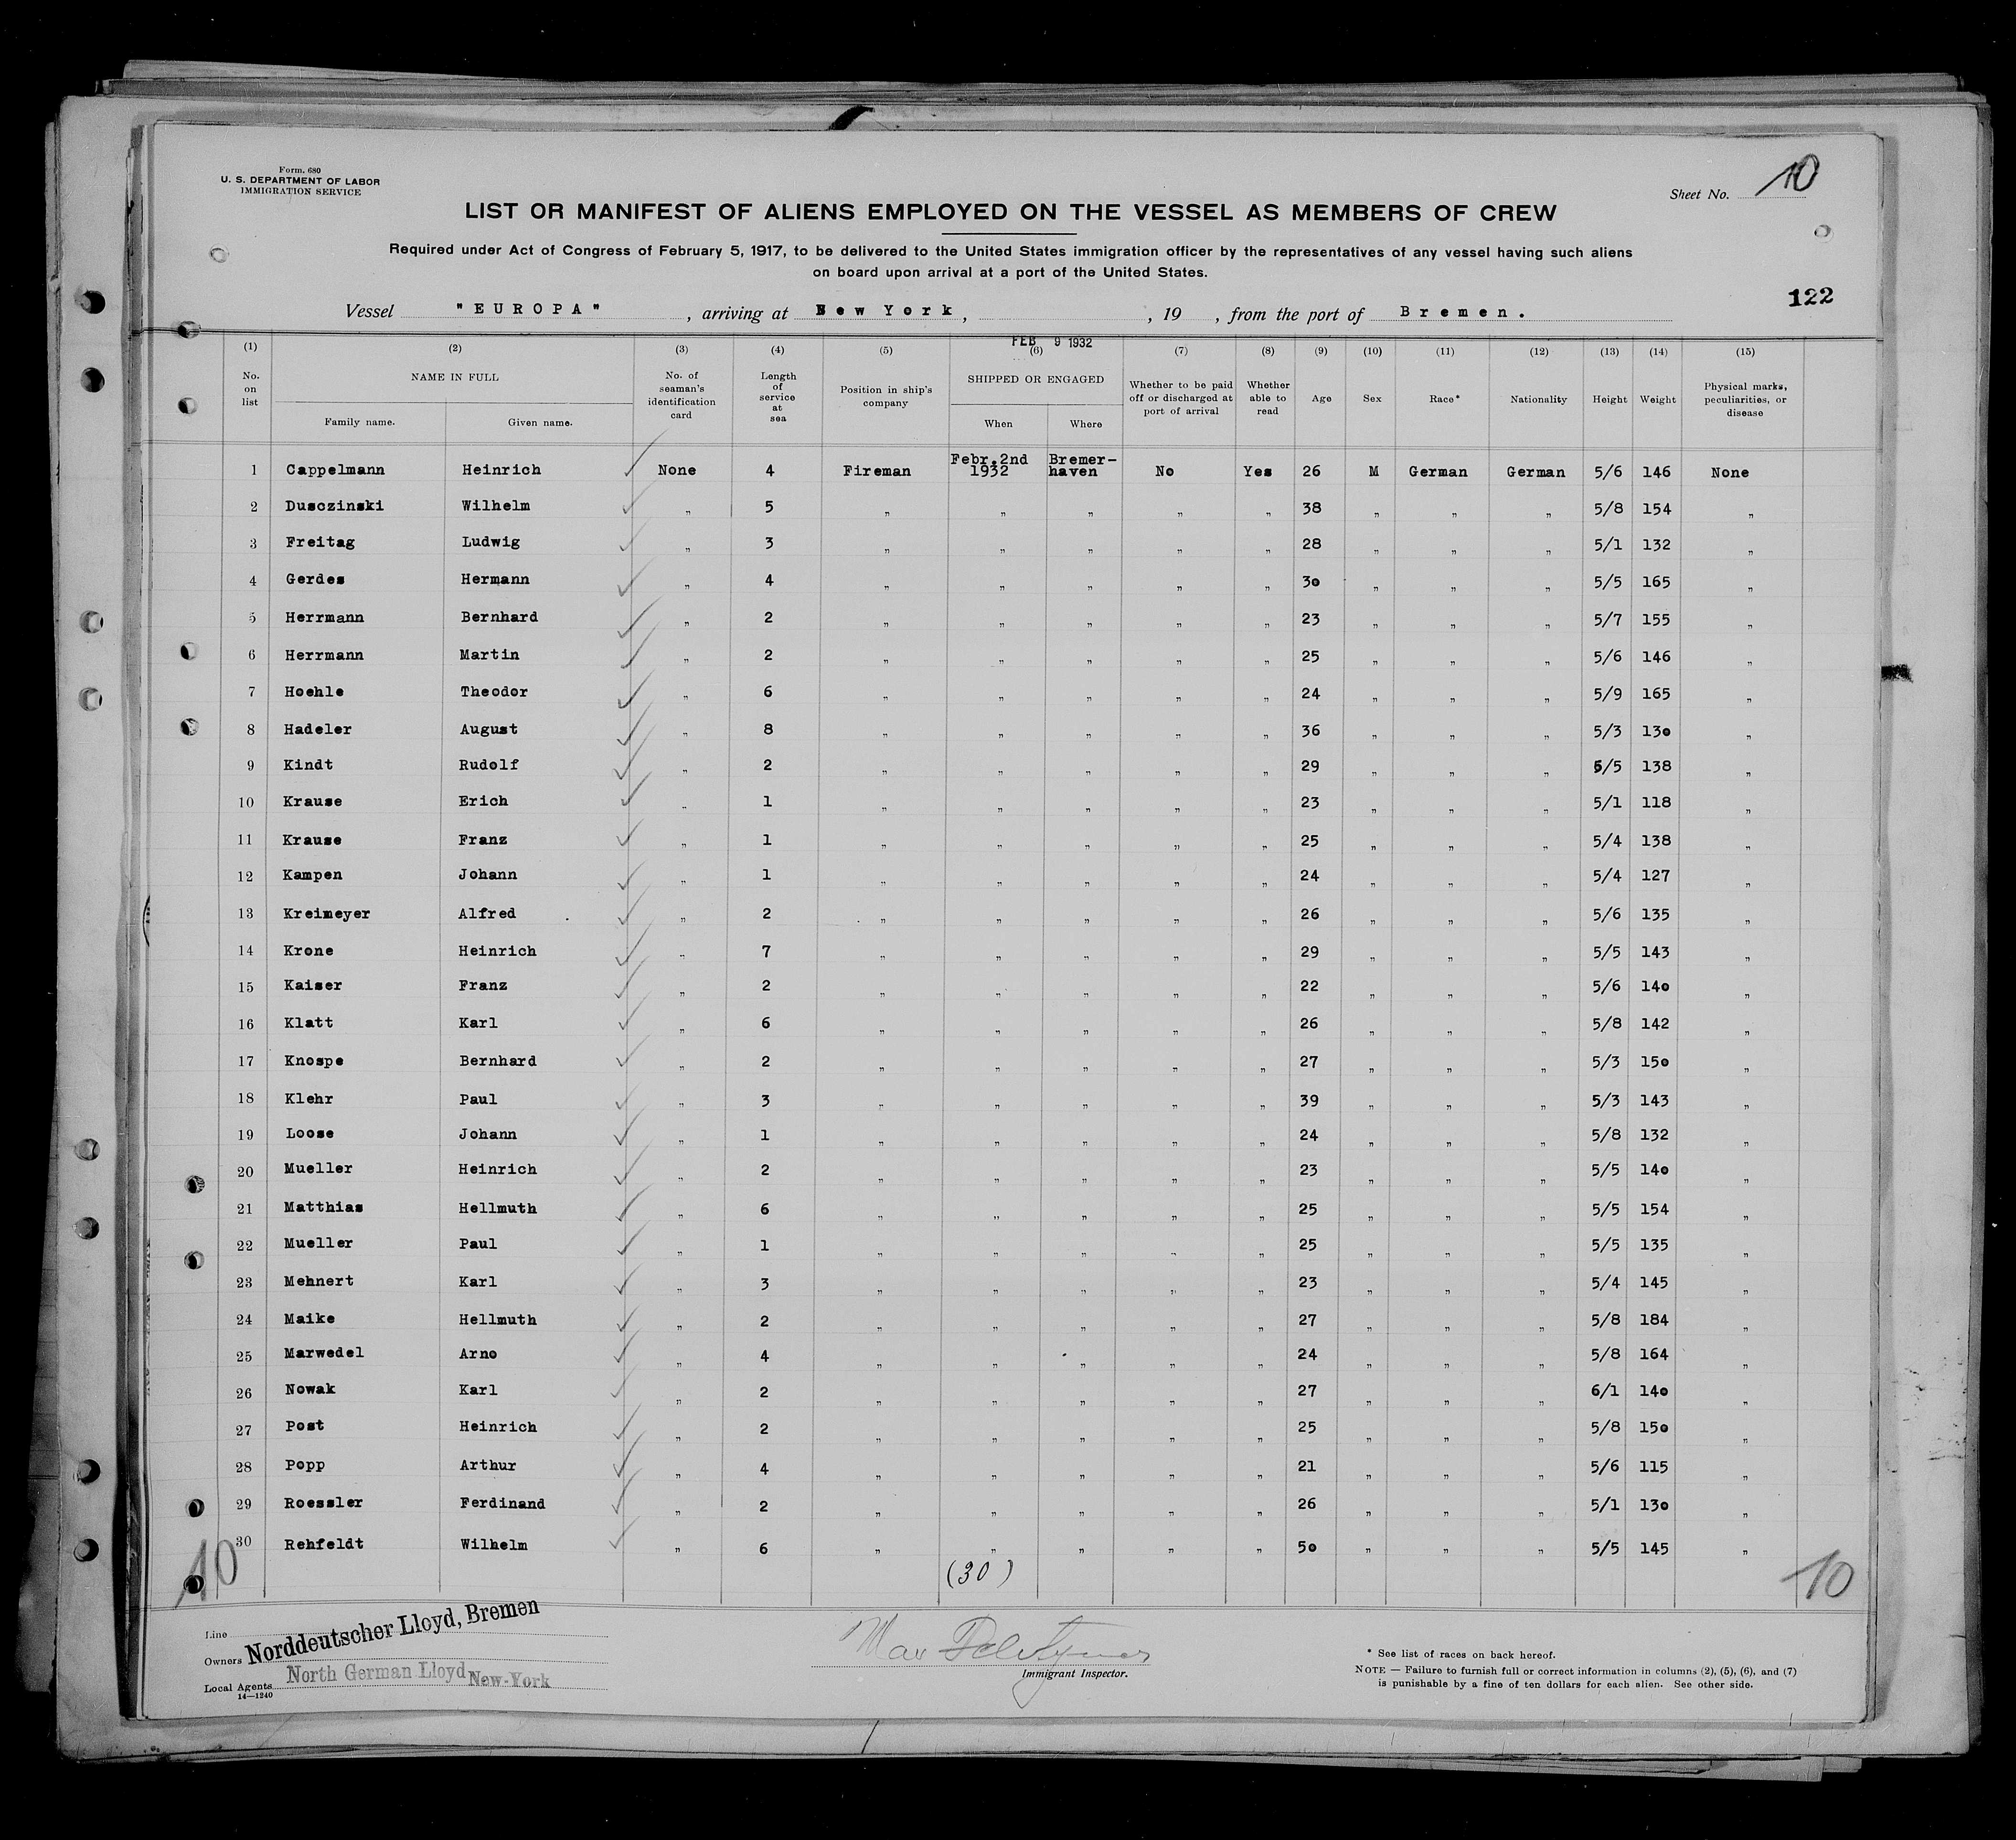 Form. 680
U. S. DEPARTMENT OF LABOR
IMMIGRATION SERVICE
Sheet No. 10
LIST OR MANIFEST OF ALIENS EMPLOYED ON THE VESSEL AS MEMBERS OF CREW
Required under Act of Congress of February 5, 1917, to be delivered to the United States immigration officer by the representatives of any vessel having such aliens
on board upon arrival at a port of the United States.
122
Vessel "EUROPA", arriving at New York, , 19 , from the port of Bremen.
FEB 9 1932
(1) (2) (3) (4) (5) (6) (7) (8) (9) (10) (11) (12) (13) (14) (15)
No. on list NAME IN FULL Family name. Given name. No. of seaman's identification card Length of service at sea Position in ship's company SHIPPED OR ENGAGED When Where Whether to be paid off or discharged at port of arrival Whether able to read Age Sex Race* Nationality Height Weight Physical marks, peculiarities, or disease
1 Cappelmann Heinrich None 4 Fireman Febr.2nd 1932 Bremer-haven No Yes 26 M German German 5/6 146 None
2 Dusczinski Wilhelm " 5 " " " " " 38 " " " 5/8 154 "
3 Freitag Ludwig " 3 " " " " " 28 " " " 5/1 132 "
4 Gerdes Hermann " 4 " " " " " 30 " " " 5/5 165 "
5 Herrmann Bernhard " 2 " " " " " 23 " " " 5/7 155 "
6 Herrmann Martin " 2 " " " " " 25 " " " 5/6 146 "
7 Hoehle Theodor " 6 " " " " " 24 " " " 5/9 165 "
8 Hadeler August " 8 " " " " " 36 " " " 5/3 130 "
9 Kindt Rudolf " 2 " " " " " 29 " " " 5/5 138 "
10 Krause Erich " 1 " " " " " 23 " " " 5/1 118 "
11 Krause Franz " 1 " " " " " 25 " " " 5/4 138 "
12 Kampen Johann " 1 " " " " " 24 " " " 5/4 127 "
13 Kreimeyer Alfred " 2 " " " " " 26 " " " 5/6 135 "
14 Krone Heinrich " 7 " " " " " 29 " " " 5/5 143 "
15 Kaiser Franz " 2 " " " " " 22 " " " 5/6 140 "
16 Klatt Karl " 6 " " " " " 26 " " " 5/8 142 "
17 Knospe Bernhard " 2 " " " " " 27 " " " 5/3 150 "
18 Klehr Paul " 3 " " " " " 39 " " " 5/3 143 "
19 Loose Johann " 1 " " " " " 24 " " " 5/8 132 "
20 Mueller Heinrich " 2 " " " " " 23 " " " 5/5 140 "
21 Matthias Hellmuth " 6 " " " " " 25 " " " 5/5 154 "
22 Mueller Paul " 1 " " " " " 25 " " " 5/5 135 "
23 Mehnert Karl " 3 " " " " " 23 " " " 5/4 145 "
24 Maike Hellmuth " 2 " " " " " 27 " " " 5/8 184 "
25 Marwedel Arno " 4 " " " " " 24 " " " 5/8 164 "
26 Nowak Karl " 2 " " " " " 27 " " " 6/1 140 "
27 Post Heinrich " 2 " " " " " 25 " " " 5/8 150 "
28 Popp Arthur " 4 " " " " " 21 " " " 5/6 115 "
29 Roessler Ferdinand " 2 " " " " " 26 " " " 5/1 130 "
30 Rehfeldt Wilhelm " 6 " " " " " 50 " " " 5/5 145 "
10 (30) 10
Line
Owners Norddeutscher Lloyd, Bremen
Local Agents North German Lloyd New-York
14—1240
Max
Immigrant Inspector.
* See list of races on back hereof.
NOTE — Failure to furnish full or correct information in columns (2), (5), (6), and (7)
is punishable by a fine of ten dollars for each alien. See other side.